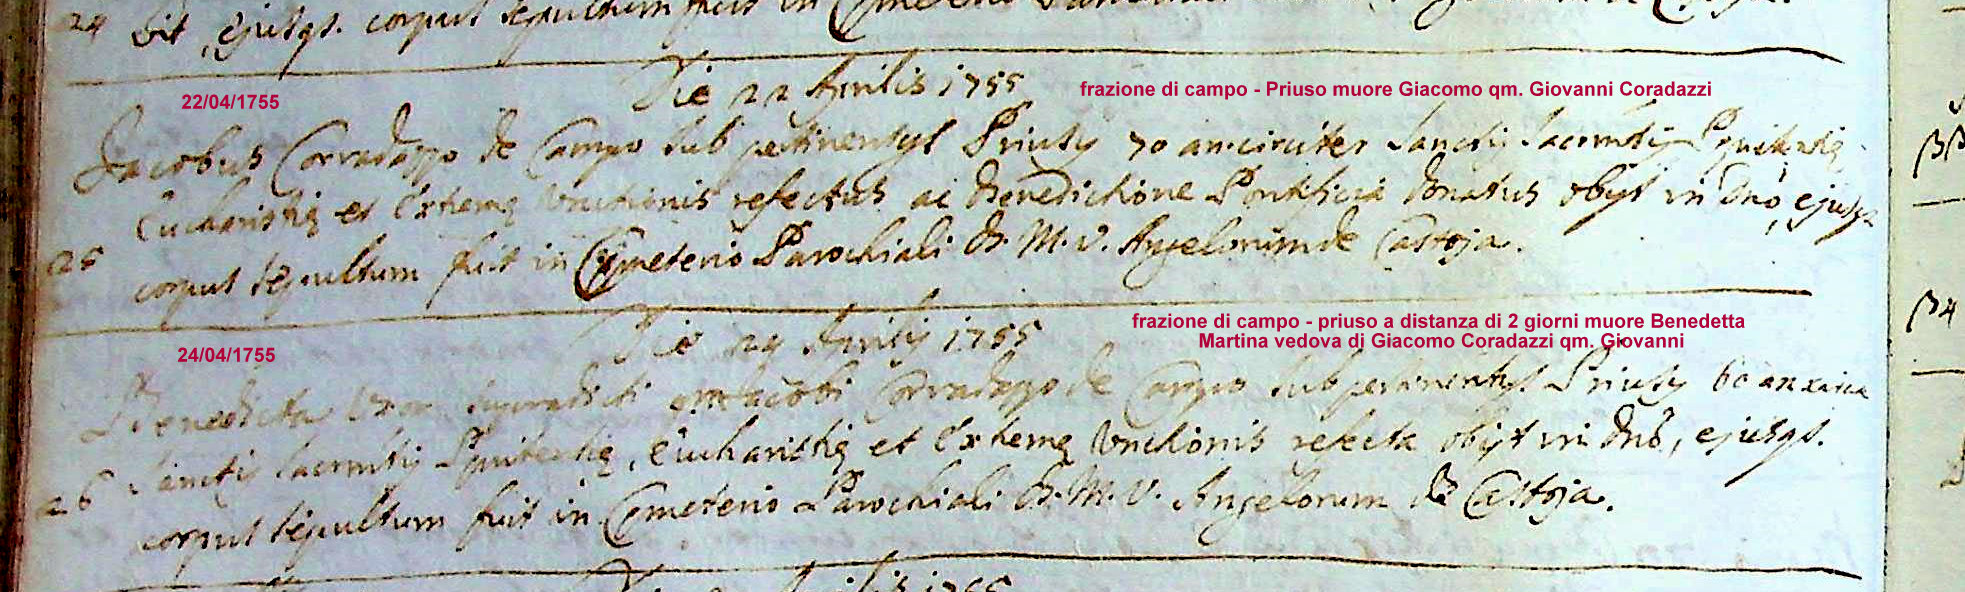 24 vit, ejusqs. corpus sepultum fuit in Cymeterio
Die 22 Aprilis 1755
22/04/1755
frazione di campo - Priuso muore Giacomo qm. Giovanni Coradazzi
Jacobus Corradazzo de Campo sub pertinentijs Priusij 70 an: circiter Sanctis Sacrmtis Pęnitentię
Eucharistię et Extremę Unctionis refectus ac Benedictione Pontificia donatus obijt in Dno, ejusqs
25 corpus sepultum fuit in Cymeterio Parochiali B. M. V. Angelorum de Castoja.
Die 24 Aprilis 1755
frazione di campo - priuso a distanza di 2 giorni muore Benedetta
Martina vedova di Giacomo Coradazzi qm. Giovanni
24/04/1755
Benedicta Uxor supradicti Jacobi Corradazzo de Campo sub pertinentijs Priusij 60 an circa
Sanctis Sacrmtis Pęnitentię, Eucharistię et Extremę Unctionis refecta obijt in Dno, ejusqs.
26 corpus sepultum fuit in Cymeterio Parochiali B. M. V. Angelorum de Castoja.
Aprilis 1755
33
34